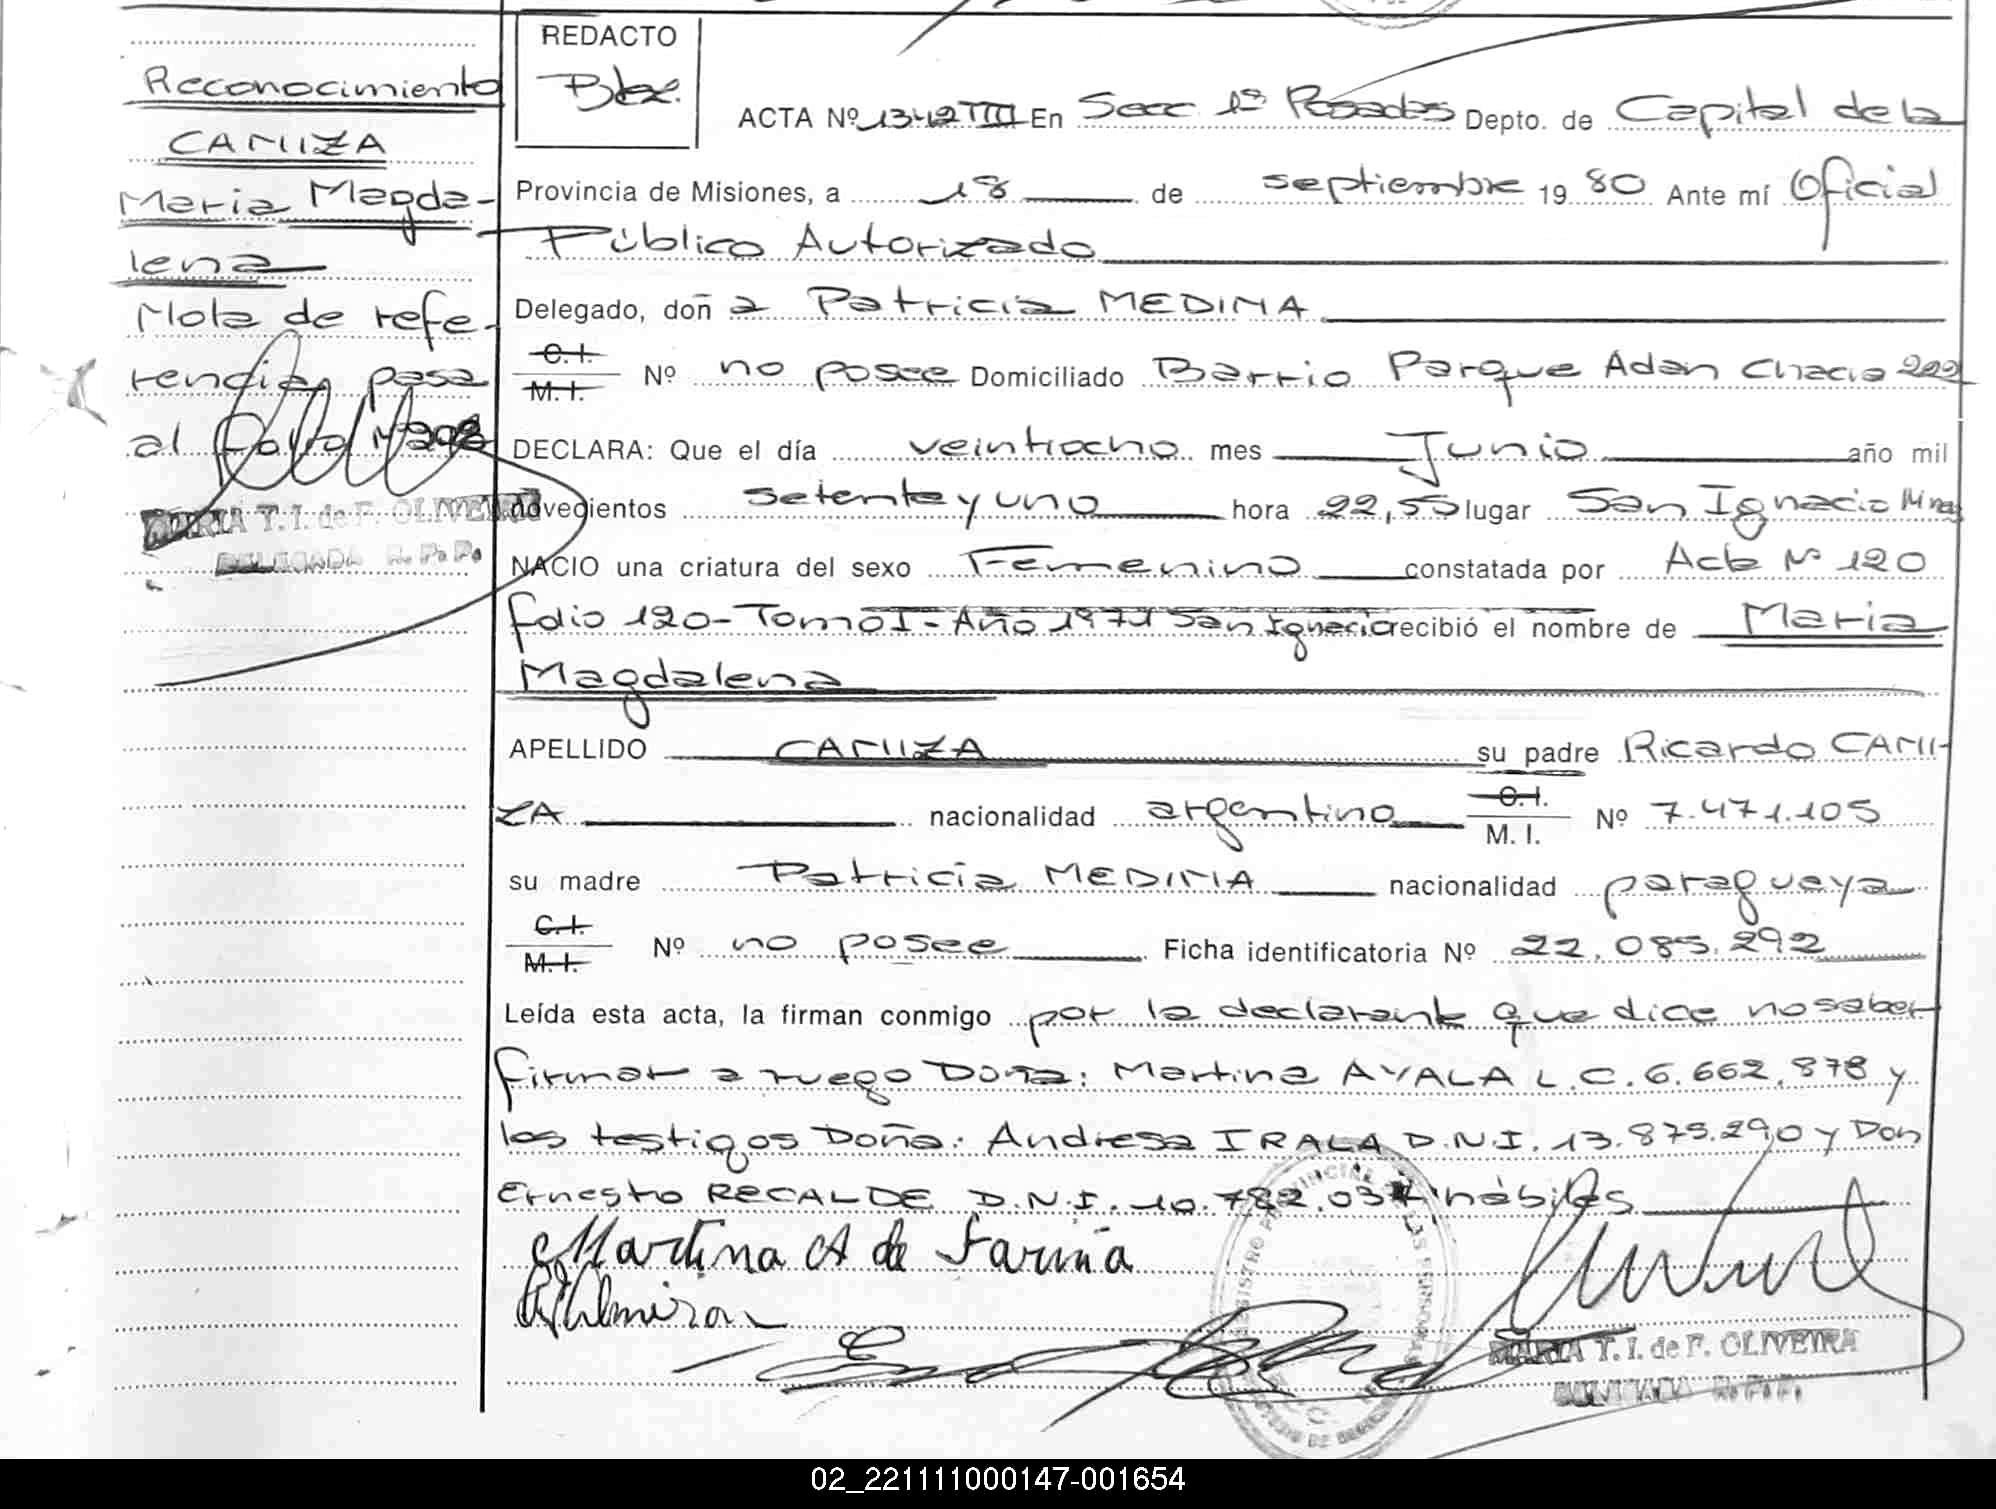 Reconocimiento
CANIZA
Maria Magda-
lena
Nota de refe-
rencia pasa
al
MARIA T. I. de F. OLIVEIRA
DELEGADA R. P. P.
REDACTO
ACTA Nº 1342 TIII En Secc 1ª Posadas Depto. de Capital de la
Provincia de Misiones, a 18 de septiembre 19 80 Ante mí Oficial
Público Autorizado
Delegado, doñ a Patricia MEDINA
C. I.
M. I. Nº no posee Domiciliado Barrio Parque Adan Chacra 222
DECLARA: Que el día veintiocho mes Junio año mil
novecientos setenta y uno hora 22,55 lugar San Ignacio Mnes
NACIO una criatura del sexo Femenino constatada por Acta Nº 120
folio 120 - Tomo I - Año 1971 San Ignacio recibió el nombre de Maria
Magdalena
APELLIDO CANIZA su padre Ricardo CANI-
ZA nacionalidad argentino C. I.
M. I. Nº 7.471.105
su madre Patricia MEDINA nacionalidad paraguaya
C. I.
M. I. Nº no posee Ficha identificatoria Nº 22.085.292
Leída esta acta, la firman conmigo por la declarante que dice no saber
firmar a ruego Doña: Martina AYALA L.C. 6.662.878 y
los testigos Doña: Andresa IRALA D.N.I. 13.875.290 y Don
Ernesto RECALDE D.N.I. 10.782.037 hábiles
Martina A de Fariña
MARIA T. I. de F. OLIVEIRA
DELEGADA R. P. P.
02_221111000147-001654